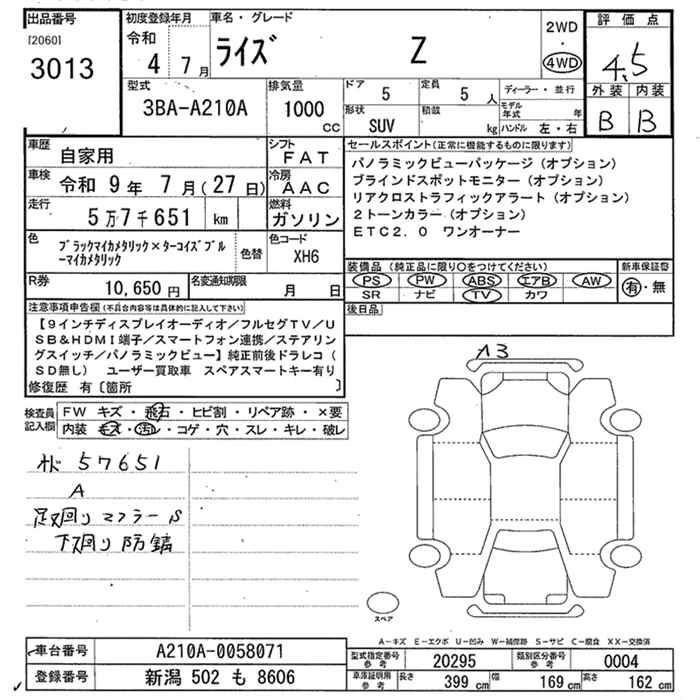 出品番号
[2060]
3013
初度登録年月
令和
4 7月
車名・グレード
ライズ Z
2WD
・
4WD
評価点
4.5
外装 内装
B B
型式
3BA-A210A
排気量
1000
CC
ドア
5
定員
5 人
形状
SUV
積載
kg
ディーラー・並行
モデル年式 年
ハンドル 左・右
車歴
自家用
シフト
FAT
車検
令和 9年 7月(27日)
冷房
AAC
走行
5万7千651 km
燃料
ガソリン
色
ブラックマイカメタリック×ターコイズブル
ーマイカメタリック
色替
色コード
XH6
R券
10,650円
名変通知期限
月 日
セールスポイント(正常に機能するものに限ります)
パノラミックビューパッケージ(オプション)
ブラインドスポットモニター(オプション)
リアクロストラフィックアラート(オプション)
2トーンカラー(オプション)
ETC2.0 ワンオーナー
装備品(純正品に限り○をつけてください)
PS PW ABS エアB AW
SR ナビ TV カワ
新車保証書
有・無
後日品
注意事項申告欄(不具合内容等は具体的に記入して下さい)
【9インチディスプレイオーディオ/フルセグTV/U
SB&HDMI端子/スマートフォン連携/ステアリン
グスイッチ/パノラミックビュー】純正前後ドラレコ(
SD無し) ユーザー買取車 スペアスマートキー有り
修復歴 有〔箇所 〕
検査員
記入欄
FW キズ・飛石・ヒビ割・リペア跡・×要
内装 キズ・汚レ・コゲ・穴・スレ・キレ・破レ
57651
A
足廻りマフラーS
下廻り防錆
A3
スペア
A−キズ E−エクボ U−凹み W−補修跡 S−サビ C−腐食 XX−交換済
車台番号
A210A-0058071
登録番号
新潟 502 も 8606
型式指定番号
参考
20295
類別区分番号
参考
0004
車庫証明用
参考
長さ 399 cm 幅 169 cm 高さ 162 cm